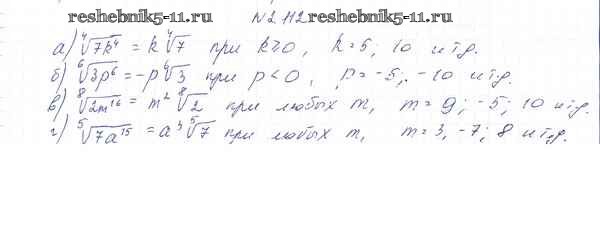 reshebnik5-11.ru
№2.112
reshebnik5-11.ru
а) ∜(7k⁴) = k ∜7 при k≥0, k=5; 10 и т.д.
б) ⁶√(3p⁶) = -p ⁶√3 при p<0, p=-5; -10 и т.д.
в) ⁸√(2m¹⁶) = m² ⁸√2 при любых m, m=9; -5; 10 и т.д.
г) ⁵√(7a¹⁵) = a³ ⁵√7 при любых m, m=3, -7; 8 и т.д.